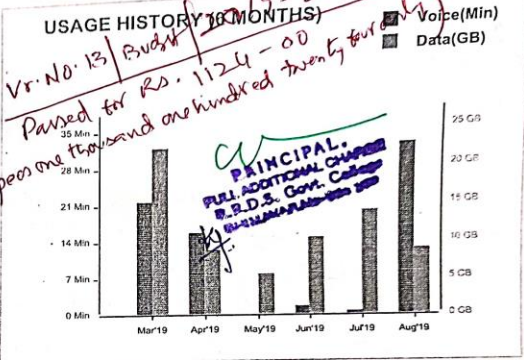 USAGE HISTORY (6 MONTHS)
Voice(Min)
Data(GB)
Vr. No. 13
Passed for Rs. 1124-00
one thousand one hundred twenty four only)
PRINCIPAL,
FULL ADDITIONAL CHARGE
Govt. College
35 Min
28 Min
21 Min
14 Min
7 Min
0 Min
25 GB
20 GB
15 GB
10 GB
5 GB
0 GB
Mar'19 Apr'19 May'19 Jun'19 Jul'19 Aug'19